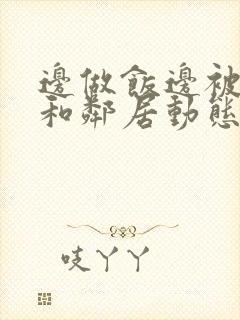 邊做飯邊被
和鄰居動態
吱丫丫